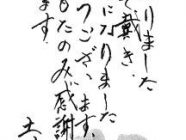 りました
て戴き
になりました
うございます
もたのみが感謝
ます。